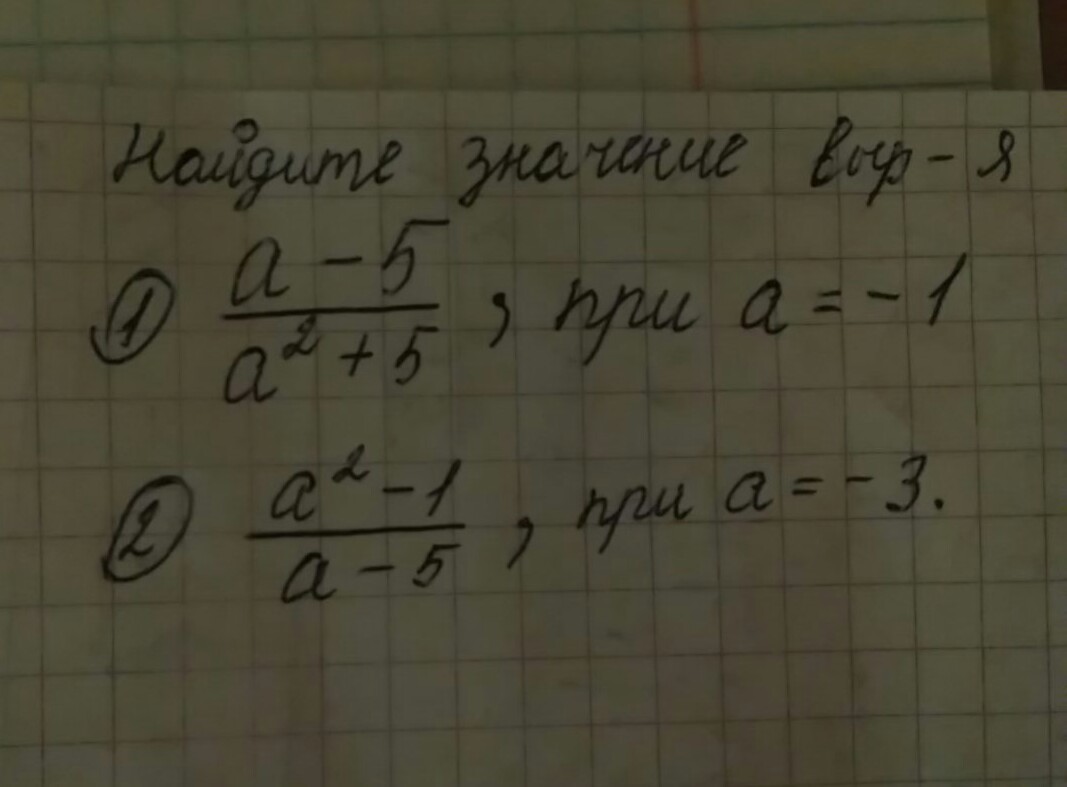 Найдите значение выр-я
① (a - 5)/(a² + 5), при a = -1
② (a² - 1)/(a - 5), при a = -3.